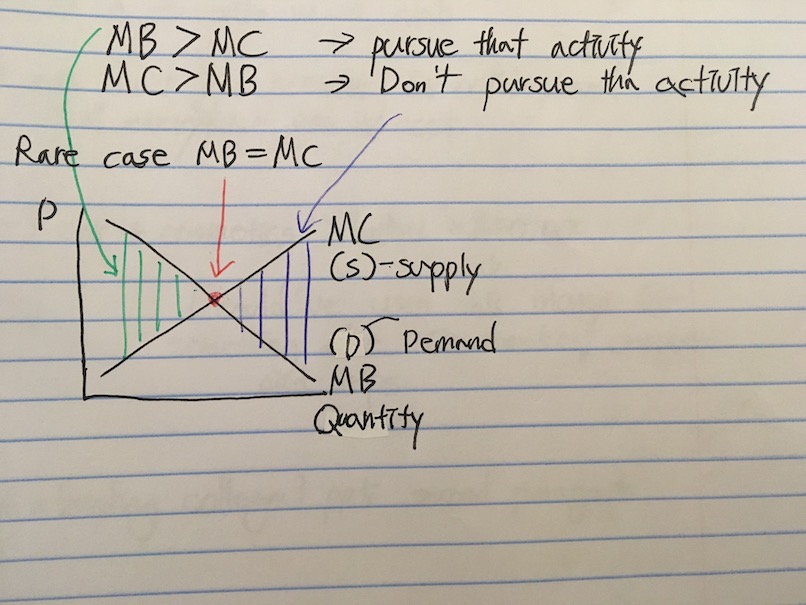 MB > MC → pursue that activity
MC > MB → Don't pursue tha activity
Rare case MB = MC
P
MC
(S)-supply
(D) Demand
MB
Quantity